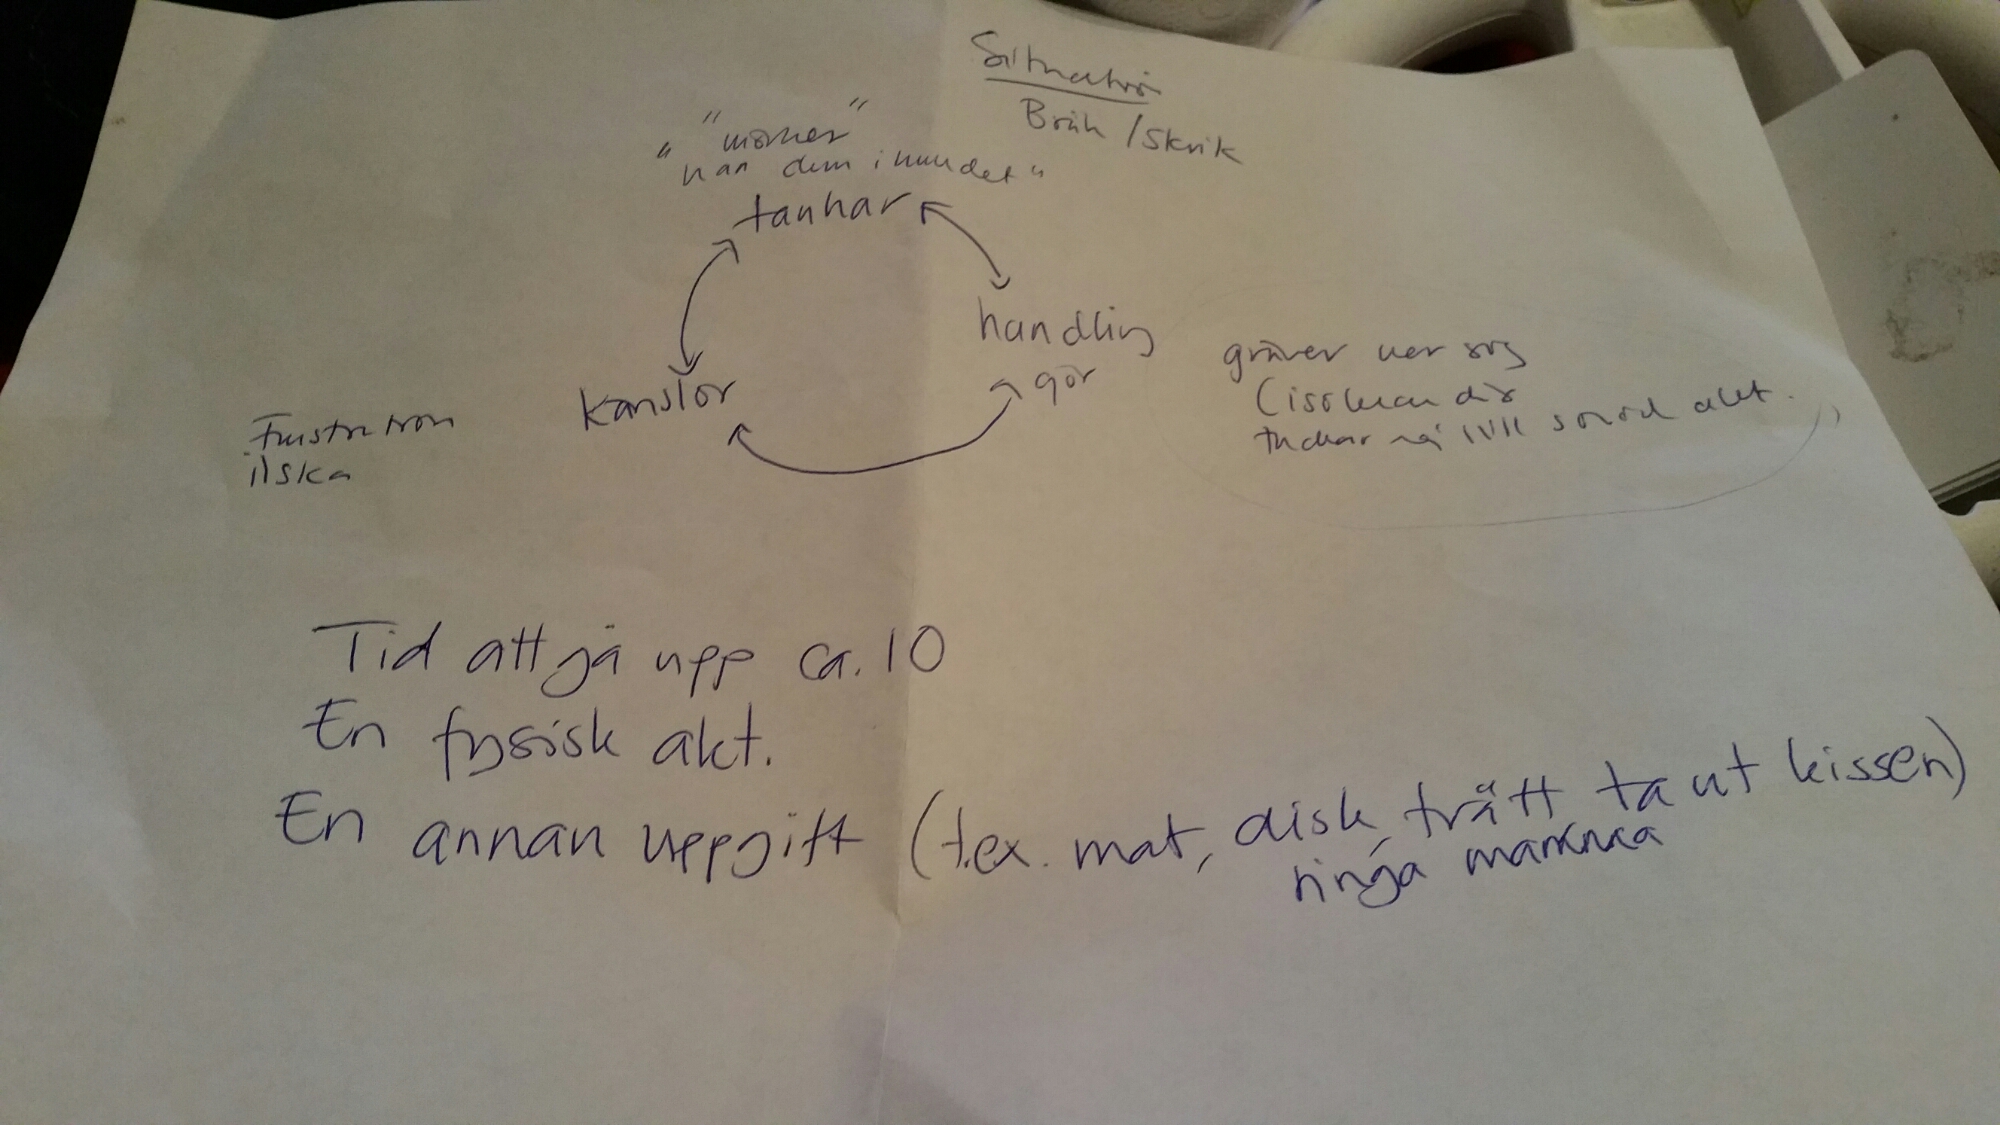 Situation
Bråk / skrik
" "
" han dem i huvudet "
tankar
handling
gör
gräver ner sig
(isolerar
tankar på
akt.
känslor
Frustration
ilska
Tid att gå upp ca. 10
En fysisk akt.
En annan uppgift (t.ex. mat, disk, trätt ta ut kissen)
ringa mamma